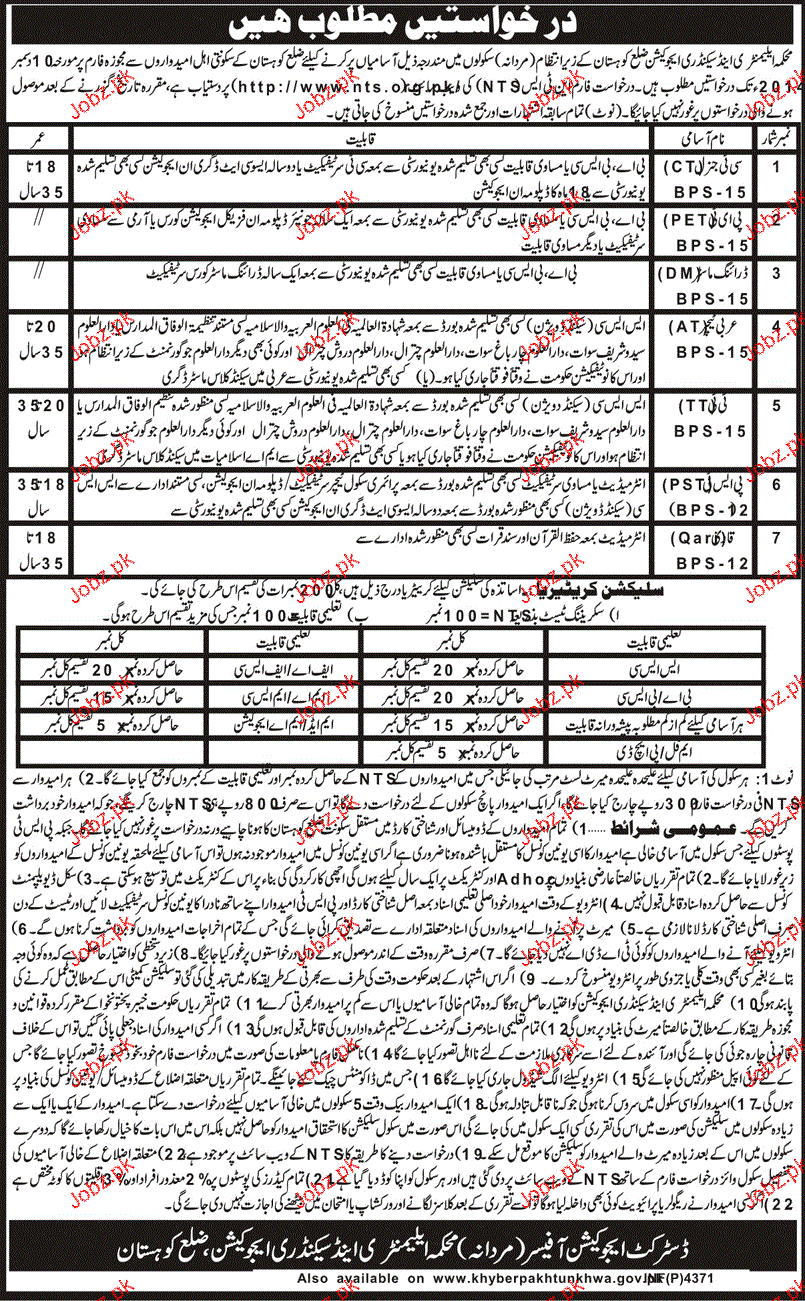 درخواستیں مطلوب ہیں
محکمہ ایلیمنٹری اینڈ سیکنڈری ایجوکیشن ضلع کوہستان کے زیر انتظام (مردانہ) سکولوں میں مندرجہ ذیل آسامیاں پر کرنے کیلئے ضلع کوہستان کے سکونتی اہل امیدواروں سے مجوزہ فارم پر مورخہ 10 دسمبر
2014 تک درخواستیں مطلوب ہیں۔ درخواست فارم این ٹی ایس (NTS) کی (http://www.nts.org.pk) پر دستیاب ہے، مقررہ تاریخ گزرنے کے بعد موصول
ہونے والی درخواستوں پر غور نہیں کیا جائیگا۔ (نوٹ) تمام سابقہ اشتہارات اور جمع شدہ درخواستیں منسوخ کی جاتی ہیں۔
نمبر شمار نام آسامی قابلیت عمر
1 سی ٹی جنرل (CT) BPS-15 بی اے، بی ایس سی یا مساوی قابلیت کسی بھی تسلیم شدہ یونیورسٹی سے بمعہ سی ٹی سرٹیفکیٹ یا دو سالہ ایسوسی ایٹ ڈگری ان ایجوکیشن کسی بھی تسلیم شدہ 18 تا
یونیورسٹی سے یا 18 ماہ کا ڈپلومہ ان ایجوکیشن 35 سال
2 پی ای ٹی (PET) BPS-15 بی اے، بی ایس سی یا مساوی قابلیت کسی بھی تسلیم شدہ یونیورسٹی سے بمعہ ایک سالہ جونیئر ڈپلومہ ان فزیکل ایجوکیشن کورس یا آرمی سے مساوی //
سرٹیفکیٹ یا دیگر مساوی قابلیت
3 ڈرائنگ ماسٹر (DM) BPS-15 بی اے، بی ایس سی یا مساوی قابلیت کسی بھی تسلیم شدہ یونیورسٹی سے بمعہ ایک سالہ ڈرائنگ ماسٹر کورس سرٹیفکیٹ //
4 عربی ٹیچر (AT) BPS-15 ایس ایس سی (سیکنڈ ڈویژن) کسی بھی تسلیم شدہ بورڈ سے بمعہ شہادۃ العالمیہ فی العلوم العربیہ والاسلامیہ کسی مستند تنظیمۃ الوفاق المدارس یا دارالعلوم 20 تا
سیدو شریف سوات، دارالعلوم چارباغ سوات، دارالعلوم چترال، دارالعلوم دروش چترال اور کوئی بھی دیگر دارالعلوم جو گورنمنٹ کے زیر انتظام ہو 35 سال
اور اس کا نوٹیفکیشن حکومت نے وقتاً فوقتاً جاری کیا ہو۔ (یا) کسی بھی تسلیم شدہ یونیورسٹی سے عربی میں سیکنڈ کلاس ماسٹر ڈگری
5 ٹی ٹی (TT) BPS-15 ایس ایس سی (سیکنڈ ڈویژن) کسی بھی تسلیم شدہ بورڈ سے بمعہ شہادۃ العالمیہ فی العلوم العربیہ والاسلامیہ کسی منظور شدہ تنظیم الوفاق المدارس یا 20 تا 35
دارالعلوم سیدو شریف سوات، دارالعلوم چارباغ سوات، دارالعلوم چترال، دارالعلوم دروش چترال اور کوئی دیگر دارالعلوم جو گورنمنٹ کے زیر سال
انتظام ہو اور اس کا نوٹیفکیشن حکومت نے وقتاً فوقتاً جاری کیا ہو یا کسی بھی تسلیم شدہ یونیورسٹی سے ایم اے اسلامیات میں سیکنڈ کلاس ماسٹر ڈگری
6 پی ایس ٹی (PST) (BPS-12 انٹرمیڈیٹ یا مساوی سرٹیفکیٹ کسی بھی تسلیم شدہ بورڈ سے بمعہ پرائمری سکول ٹیچر سرٹیفکیٹ/ڈپلومہ ان ایجوکیشن، کسی مستند ادارے سے ایس ایس 18 تا 35
سی (سیکنڈ ڈویژن) کسی بھی منظور شدہ بورڈ سے بمعہ دو سالہ ایسوسی ایٹ ڈگری ان ایجوکیشن کسی بھی تسلیم شدہ یونیورسٹی سے سال
7 قاری (Qari) BPS-12 انٹرمیڈیٹ بمعہ حفظ القرآن اور سند قرات کسی بھی منظور شدہ ادارے سے 18 تا 35 سال
سلیکشن کریٹیریا:۔ اساتذہ کی سلیکشن کیلئے کریٹیریا درج ذیل ہیں، کل 200 نمبرات کی تقسیم اس طرح کی جائے گی۔
ا) سکریننگ ٹیسٹ بذریعہ NTS=100 نمبر ب) تعلیمی قابلیت=100 نمبر جس کی مزید تقسیم اس طرح ہوگی۔
تعلیمی قابلیت کل نمبر تعلیمی قابلیت کل نمبر
ایس ایس سی حاصل کردہ نمبر x 20 تقسیم کل نمبر ایف اے/ایف ایس سی حاصل کردہ نمبر x 20 تقسیم کل نمبر
بی اے/بی ایس سی حاصل کردہ نمبر x 20 تقسیم کل نمبر ایم اے/ایم ایس سی حاصل کردہ نمبر x 15 تقسیم کل نمبر
ہر آسامی کیلئے کم از کم مطلوبہ پیشہ ورانہ قابلیت حاصل کردہ نمبر x 15 تقسیم کل نمبر ایم ایڈ/ایم اے ایجوکیشن حاصل کردہ نمبر x 5 تقسیم کل نمبر
ایم فل/پی ایچ ڈی حاصل کردہ نمبر x 5 تقسیم کل نمبر
نوٹ 1: ہر سکول کی آسامی کیلئے علیحدہ علیحدہ میرٹ لسٹ مرتب کی جائیگی جس میں امیدواروں کے NTS کے حاصل کردہ نمبر اور تعلیمی قابلیت کے نمبروں کو جمع کیا جائے گا۔ 2) ہر امیدوار سے
NTS فی درخواست فارم 300 روپے چارج کیا جائے گا، اگر ایک امیدوار پانچ سکولوں کے لئے درخواست دے گا تو اس سے صرف 800 روپے NTS چارج کریگی، جو کہ امیدوار خود برداشت
کریں گے۔ عمومی شرائط ..... 1) تمام امیدواروں کے ڈومیسائل اور شناختی کارڈ میں مستقل سکونت ضلع کوہستان کا ہونا چاہیے ورنہ درخواست پر غور نہیں کیا جائے گا۔ جبکہ پی ایس ٹی
پوسٹوں کیلئے جس سکول میں آسامی خالی ہے امیدوار کا اسی یونین کونسل کا مستقل باشندہ ہونا ضروری ہے اگر اسی یونین کونسل میں امیدوار موجود نہ ہوں تو اس آسامی کے لئے ملحقہ یونین کونسل کے امیدواروں کو
زیر غور لایا جائے گا۔ 2) تمام تقرریاں خالصتاً عارضی بنیادوں پر Adhoc اور کنٹریکٹ پر ایک سال کیلئے ہوں گی اچھی کارکردگی کی بناء پر اس کے کنٹریکٹ میں توسیع ہو سکتی ہے۔ 3) سکل ڈویلپمنٹ
کونسل سے حاصل کردہ اسناد قابل قبول نہیں۔ 4) انٹرویو کے وقت امیدوار خود اصلی تعلیمی اسناد بمعہ اصل شناختی کارڈ اور پی ایس ٹی امیدوار اپنے ساتھ نادرا کا یونین کونسل سرٹیفکیٹ لائیں اور ٹیسٹ کے دن
صرف اصلی شناختی کارڈ لانا لازمی ہے۔ 5) میرٹ پر آنے والے امیدواروں کی اسناد متعلقہ ادارے سے تصدیق کرائی جائے گی جس کے تمام اخراجات امیدواروں کو برداشت کرنا ہوں گے۔ 6)
انٹرویو کیلئے آنے والے امیدواروں کو کوئی ٹی اے ڈی اے نہیں دیا جائے گا۔ 7) صرف مقررہ وقت کے اندر موصول ہونے والی درخواستوں پر غور کیا جائیگا۔ 8) زیر دستخطی کو اختیار حاصل ہے کہ وہ کوئی وجہ
بتائے بغیر کسی بھی وقت کلی یا جزوی طور پر انٹرویو منسوخ کر دے۔ 9) اگر اس اشتہار کے بعد حکومت وقت کی طرف سے بھرتی کے طریقہ کار میں تبدیلی کی گئی تو سلیکشن کمیٹی اس کے مطابق عمل کرنے کی
پابند ہوگی 10) محکمہ ایلیمنٹری اینڈ سیکنڈری ایجوکیشن کو اختیار حاصل ہوگا کہ وہ تمام خالی آسامیوں یا اس سے کم پر امیدوار بھرتی کرے 11) تمام تقرریاں حکومت خیبر پختونخوا کے مقرر کردہ قوانین و
مجوزہ طریقہ کار کے مطابق خالصتاً میرٹ کی بنیاد پر ہوں گی 12) تمام تعلیمی اسناد صرف گورنمنٹ کے تسلیم شدہ اداروں کی قابل قبول ہوں گی 13) اگر کسی امیدوار کی اسناد جعلی پائی گئیں تو اس کے خلاف
قانونی چارہ جوئی کی جائے گی اور آئندہ کے لئے اسے سرکاری ملازمت کے لئے نااہل تصور کیا جائے گا 14) نامکمل فارم یا معلومات کی صورت میں درخواست فارم خود بخود خارج تصور کیا جائے گا جس
کے لئے کوئی اپیل منظور نہیں کی جائے گی 15) انٹرویو کیلئے الگ شیڈول جاری کیا جائے گا 16) جس میں ڈاکومنٹس چیک کئے جائینگے۔ تمام تقرریاں متعلقہ اضلاع کے ڈومیسائل/یونین کونسل کی بنیاد پر
ہوں گی۔ 17) امیدوار کو اسی سکول میں سروس کرنا ہوگی جو کہ ناقابل تبادلہ ہوگی۔ 18) ایک امیدوار بیک وقت 5 سکولوں میں خالی آسامیوں کیلئے درخواست دے سکتا ہے۔ امیدوار کے ایک یا ایک سے
زیادہ سکولوں میں سلیکشن کی صورت میں اس کی تقرری کسی ایک سکول میں کی جائے گی اس صورت میں سکول سلیکشن کا استحقاق امیدوار کو حاصل نہیں بلکہ اس میں اس بات کا خیال رکھا جائے گا کہ دوسرے
سکولوں میں اس کے بعد زیادہ میرٹ والے امیدوار کو سلیکشن کا موقع مل سکے۔ 19) درخواست دینے کا طریقہ کار NTS کے ویب سائٹ پر موجود ہے 22) متعلقہ اضلاع کے خالی آسامیوں کی
تفصیل سکول وائز درخواست فارم کے ساتھ NTS کے ویب سائٹ پر دی گئی ہیں اور ہر سکول کو اپنا کوڈ دیا گیا ہے 21) تمام کیڈرز کی پوسٹوں پر 2% معذور افراد اور 3% اقلیتوں کا کوٹہ مختص ہے
22) اگر کسی امیدوار نے ریگولر یا پرائیویٹ کوئی بھی داخلہ لیا ہوگا تو اسے تقرری کے بعد کلاسز لگانے اور ورکشاپ یا امتحان میں بیٹھنے کی اجازت نہیں دی جائے گی۔
ڈسٹرکٹ ایجوکیشن آفیسر (مردانہ) محکمہ ایلیمنٹری اینڈ سیکنڈری ایجوکیشن، ضلع کوہستان
Also available on www.khyberpakhtunkhwa.gov.pk INF(P)4371
Jobz.pk